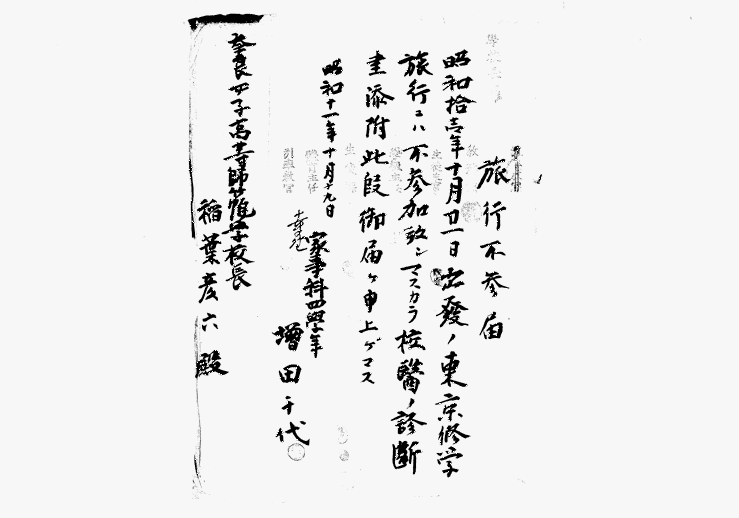 旅行不参届
昭和拾壱年十月廿一日出發ノ東京修学
旅行ニハ不参加致シマスカラ校醫ノ診断
書添附此段御届ケ申上ゲマス
昭和十一年十月十九日
家事科四學年
増田千代
奈良女子高等師範學校長
稲葉彦六殿